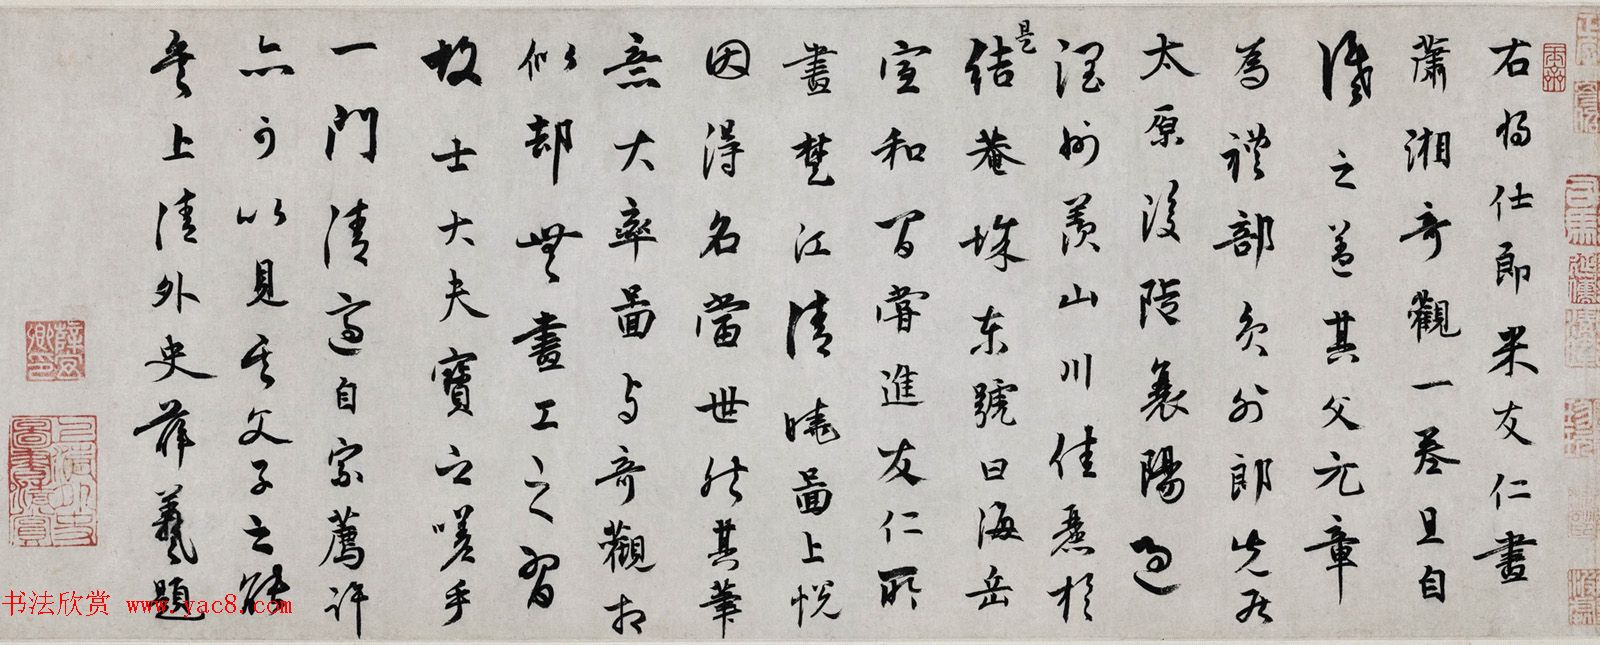 右将仕郎米友仁畫
蕭湘奇觀一卷且自
識之蓋其父元章
為禮部員外郎先居
太原後陟襄陽過
潤州羨山川佳麗於是
結菴城東號曰海岳
宣和間嘗進友仁所
畫楚江清曉圖上悅
因得名當世然其筆
意大率圖與奇觀相
似却無畫工之習
故士大夫寶之嗟乎
一門清適自宗薦許
亦可以見其父子之能
矣上清外史薛羲題
薛玄卿印
书法欣赏 www.yac8.com